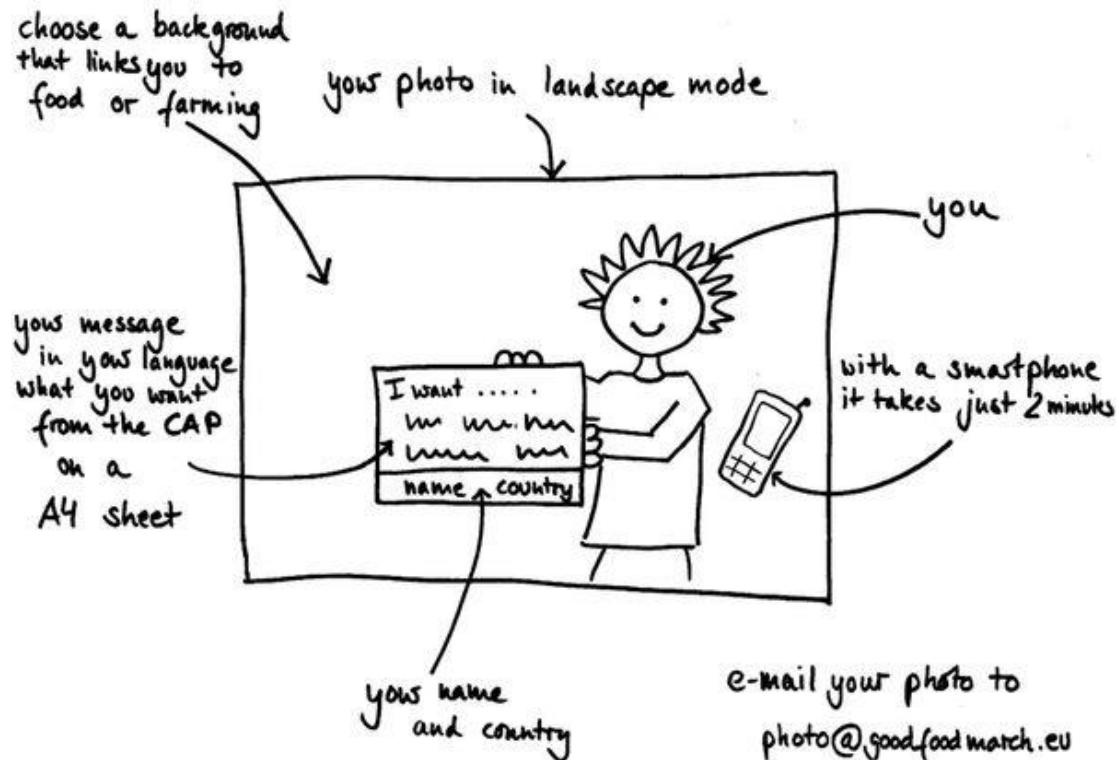 choose a background
that links you to
food or farming
your photo in landscape mode
you
your message
in your language
what you want
from the CAP
on a
A4 sheet
I want .....
name country
with a smartphone
it takes just 2 minutes
your name
and country
e-mail your photo to
photo@goodfoodmarch.eu